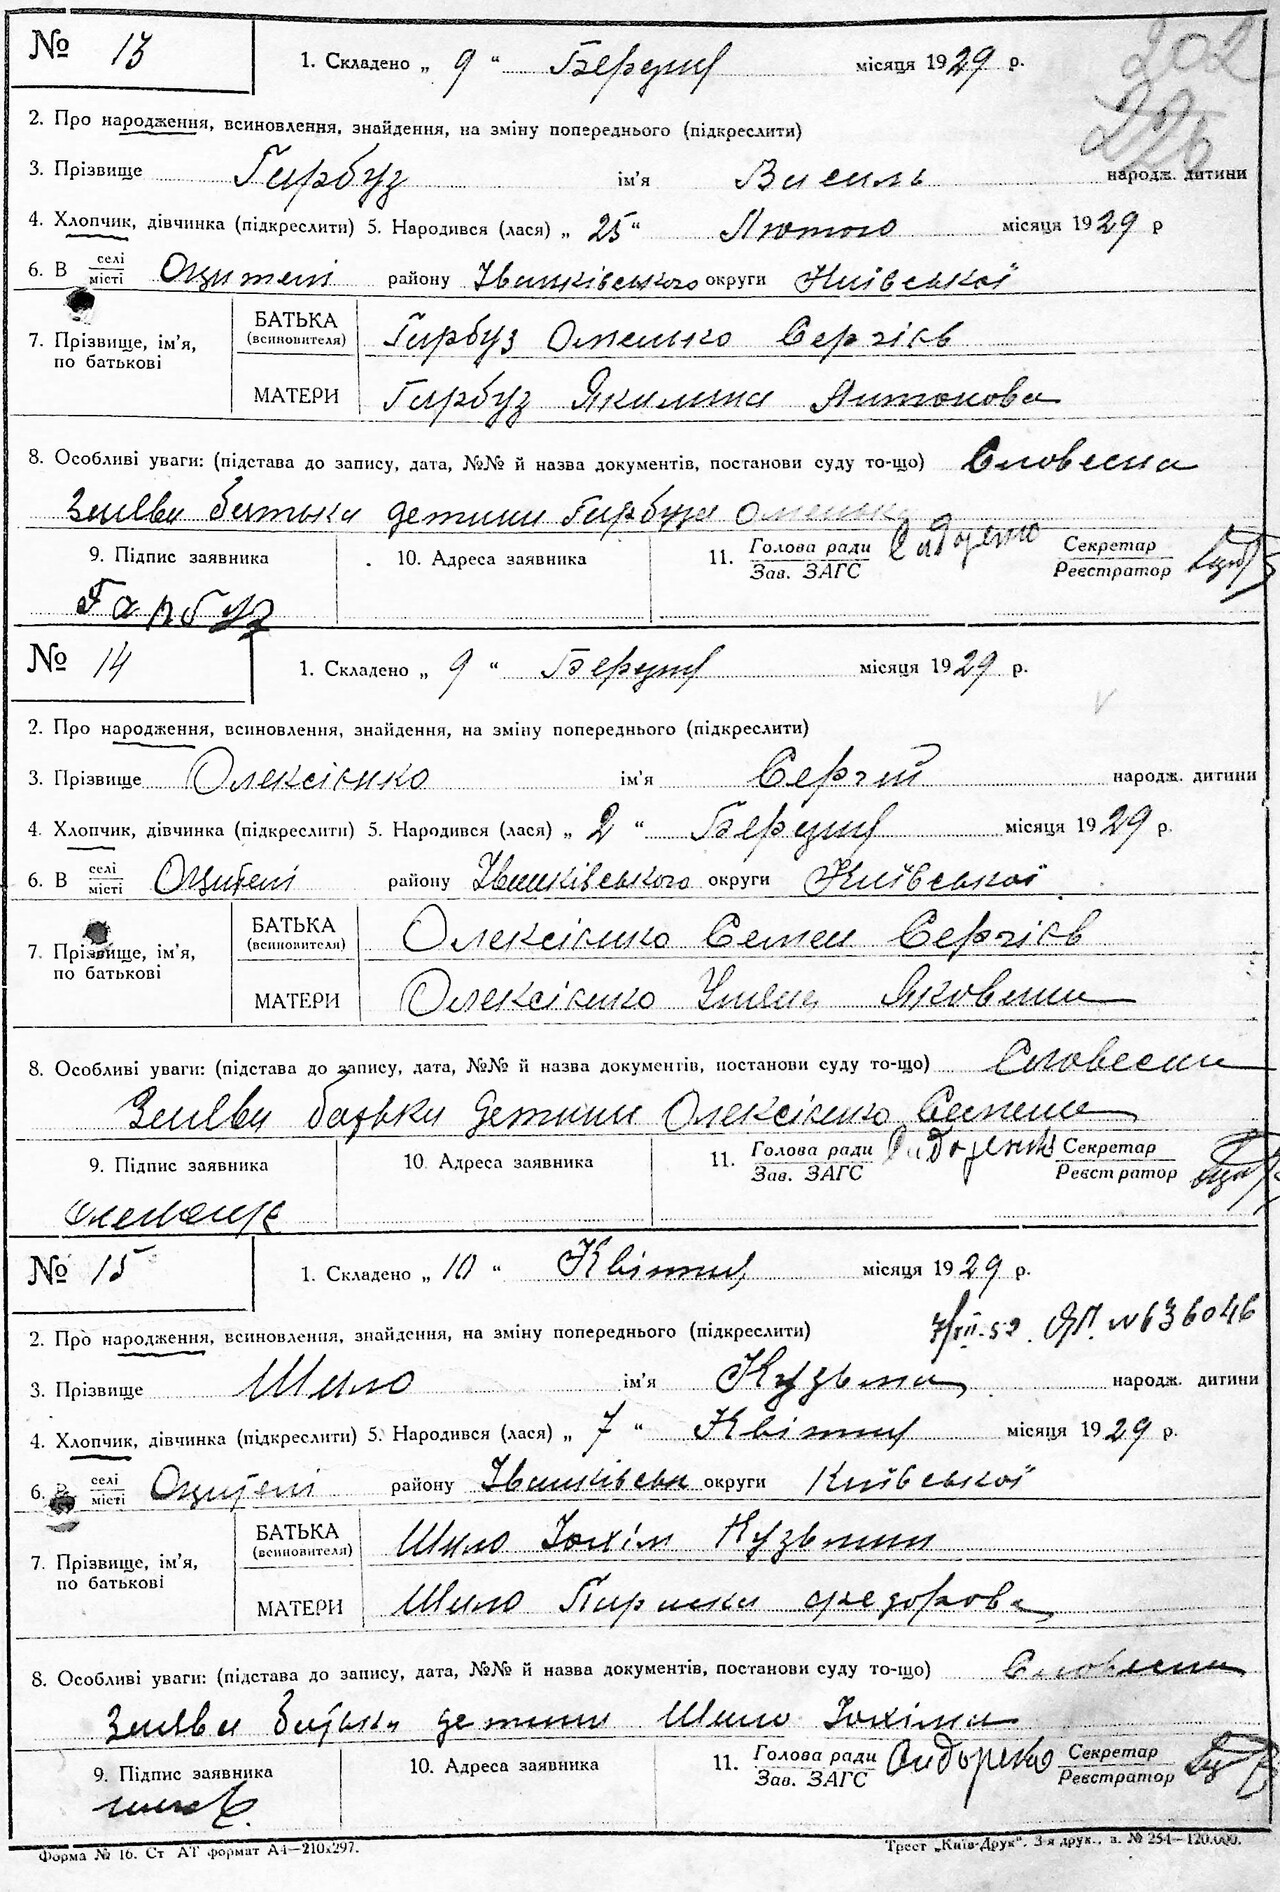 202
226
№ 13 1. Складено „ 9 “ Березня місяця 1929 р.
2. Про народження, всиновлення, знайдення, на зміну попереднього (підкреслити)
3. Прізвище Гарбуз ім'я Василь народж. дитини
4. Хлопчик, дівчинка (підкреслити) 5. Народився (лася) „ 25 “ Лютого місяця 1929 р
6. В селі місті Оцителі району Іванківського округи Київської
7. Прізвище, ім'я, по батькові
БАТЬКА (всиновителя) Гарбуз Омелько Сергієв
МАТЕРИ Гарбуз Якилина Антонова
8. Особливі уваги: (підстава до запису, дата, №№ й назва документів, постанови суду то-що) Словесна
Заява батька детини Гарбуза Омелька
9. Підпис заявника 10. Адреса заявника 11. Голова ради Зав. ЗАГС Сидоренко Секретар Реєстратор
Гарбуз
№ 14 1. Складено „ 9 “ Березня місяця 1929 р.
2. Про народження, всиновлення, знайдення, на зміну попереднього (підкреслити)
3. Прізвище Олексієнко ім'я Сергій народж. дитини
4. Хлопчик, дівчинка (підкреслити) 5. Народився (лася) „ 2 “ Березня місяця 1929 р.
6. В селі місті Оцителі району Іванківського округи Київської
7. Прізвище, ім'я, по батькові
БАТЬКА (всиновителя) Олексієнко Семен Сергієв
МАТЕРИ Олексієнко Уляна Яковина
8. Особливі уваги: (підстава до запису, дата, №№ й назва документів, постанови суду то-що) Словесна
Заява батька детини Олексієнко Семена
9. Підпис заявника 10. Адреса заявника 11. Голова ради Зав. ЗАГС Сидоренко Секретар Реєстратор
№ 15 1. Складено „ 10 “ Квітня місяця 1929 р.
2. Про народження, всиновлення, знайдення, на зміну попереднього (підкреслити) № 636046
3. Прізвище Шило ім'я Кузьма народж. дитини
4. Хлопчик, дівчинка (підкреслити) 5. Народився (лася) „ 7 “ Квітня місяця 1929 р.
6. В селі місті Оцителі району Іванківськ округи Київської
7. Прізвище, ім'я, по батькові
БАТЬКА (всиновителя) Шило Юхім Кузьмин
МАТЕРИ Шило Параска Федорова
8. Особливі уваги: (підстава до запису, дата, №№ й назва документів, постанови суду то-що) Словесна
Заява батька детини Шило Юхіма
9. Підпис заявника 10. Адреса заявника 11. Голова ради Зав. ЗАГС Сидоренко Секретар Реєстратор
Форма № 16. Ст АТ формат А4—210х297. Трест „Київ-Друк“. 3-я друк., з. № 254—120.000.